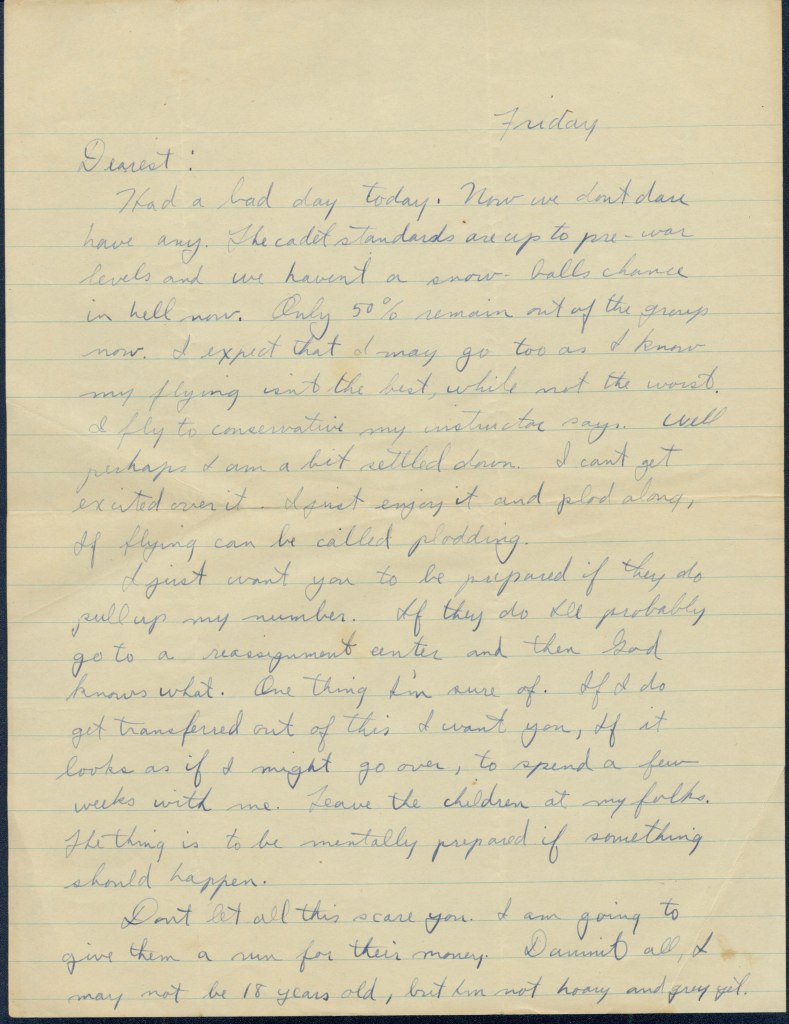 Friday
Dearest :
Had a bad day today. Now we dont dare
have any. The cadet standards are up to pre-war
levels and we havent a snow-balls chance
in hell now. Only 50% remain out of the group
now. I expect that I may go too as I know
my flying isnt the best, while not the worst.
I fly to conservative my instructor says. Well
perhaps I am a bit settled down. I cant get
excited over it. I just enjoy it and plod along,
If flying can be called plodding.
I just want you to be prepared if they do
pull up my number. If they do Ill probably
go to a reassignment center and then God
knows what. One thing I'm sure of. If I do
get transferred out of this I want you, If it
looks as if I might go over, to spend a few
weeks with me. Leave the children at my folks.
The thing is to be mentally prepared if something
should happen.
Dont let all this scare you. I am going to
give them a run for their money. Dammit all, I
may not be 18 years old, but Im not hoary and grey yet.